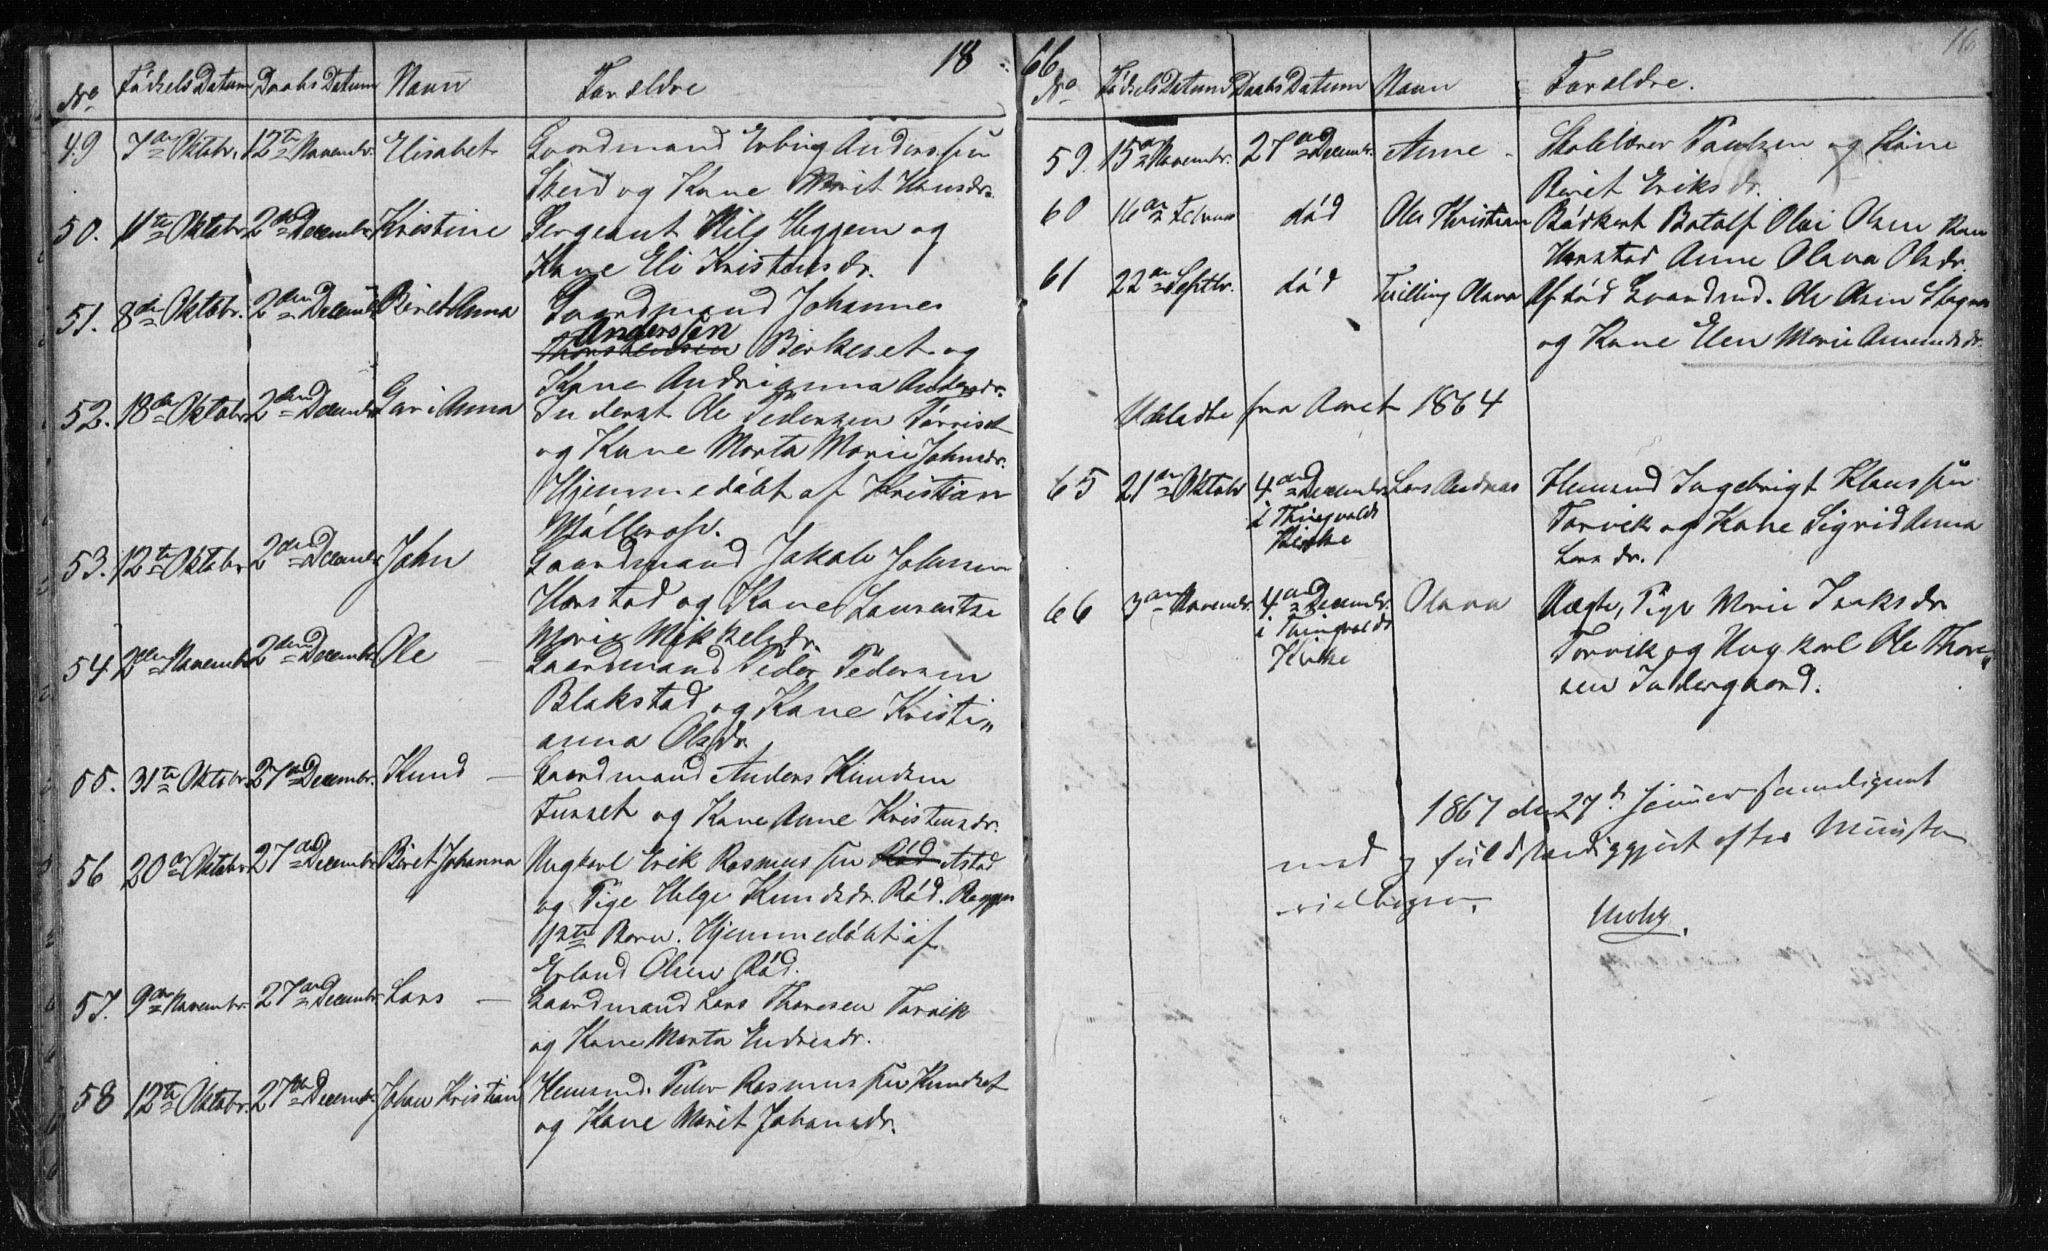 18
No Fødsels Datum Daabs Datum Navn Forældre
49 7de Oktobr. 12te Novembr. Elisabet Gaardmand Erling Anderssøn
Skeid og Kone Marit Hansdr.
50. 11te Oktobr. 2den Decembr. Kristine Sergeant Nils Heggem og
Kone Eli Kristensdr.
51. 8de Oktobr. 2den Decembr. Beret Anna Gaardmand Johannes
Anderssen
Thorstensen Birkeset og
Kone Andrianna Andersdr.
52. 18de Oktobr. 2den Decembr. Guri Anna Inderst Ole Pedersen Tørriset
og Kone Marta Marie Johnsdr.
Hjemmedøbt af Kristian
53. 12te Oktobr. 2den Decembr. John Gaardmand Jakob Johnsen
Harstad og Kone Laurentse
Marie Mikkelsdr.
54 2den Novembr. 2den Decembr. Ole – Gaardmand Peder Pedersen
Blakstad og Kone Kristi„
anna Olsdr.
55. 31te Oktobr. 27de Decembr. Knud – Gaardmand Anders Knudsen
Furset og Kone Anne Kristensdr.
56 20de Oktobr. 27de Decembr. Beret Johanna Ungkarl Erik Rasmussøn Rød Astad
og Pige Helge Knudsdr. Rød. Begges
1ste Barn. Hjemmedøbt af
Erland Olsen Rød.
57. 9de Novembr. 27de Decembr. Lars – Gaardmand Lars Thoresen Torvik
og Kone Marta Endresdr.
58 12te Oktobr. 27de Decembr. Johan Kristian Huusmd. Peder Rasmussøn Knudset
og Kone Marit Johansdr.
66 16
No Fødsels Datum Daabs Datum Navn Forældre.
59. 15de Novembr. 27de Decembr. Anne – Skolelærer Paulsen og Kone
Beret Eriksdr.
60 16de Februar død Ole Kristian Bødkert Botolf Olai Olsen
Harstad Anne Olava Olsdr.
61 22de Septbr. død Tvilling Olava Afdød Gaardmd. Ole Olsen
og Kone Elen Marie Amundsdr.
Udeladte fra Aaret 1864
65 21de Oktobr 4de Decembr. Lars Andreas Huusmd Ingebrigt Klaussøn
i Thingvolds Torvik og Kone Sigrid Anna
Kirke Larsdr.
66 3de Novembr. 4de Decembr. Olava Uægte, Pige Marie Isaksdr.
i Thingvolds Torvik og Ungkarl Ole Thore„
Kirke sen Indergaard.
1867 den 27d. Januar samlignet
med og fuldstændiggjort efter Ministe
rialbogen.